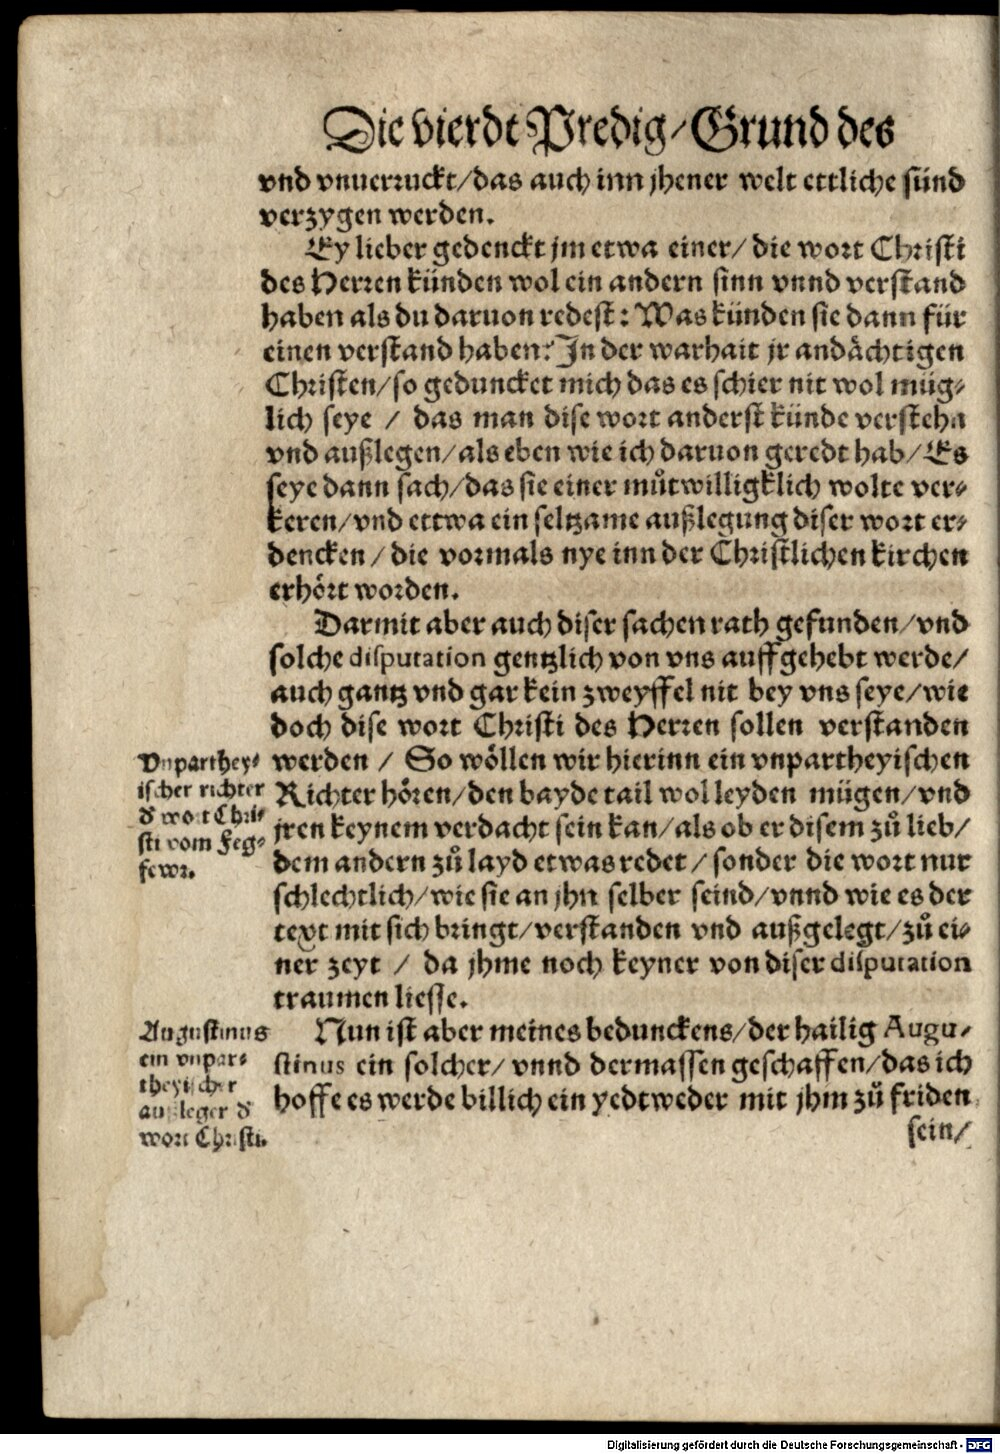 Die vierdt Predig/Grund des
vnd vnuerruckt/das auch inn jhener welt ettliche sünd
verzygen werden.
Ey lieber gedenckt jm etwa einer/ die wort Christi
des Herren künden wol ein andern sinn vnnd verstand
haben als du daruon redest: Was künden sie dann für
einen verstand haben? In der warhait jr andächtigen
Christen/so geduncket mich das es schier nit wol müg⸗
lich seye / das man dise wort anderst künde verstehn
vnd außlegen/als eben wie ich daruon geredt hab/Es
seye dann sach/das sie einer muͦtwilligklich wolte ver⸗
keren/vnd ettwa ein seltzame außlegung diser wort er⸗
dencken/die vormals nye inn der Christlichen kirchen
erhört worden.
Darmit aber auch diser sachen rath gefunden/vnd
solche disputation gentzlich von vns auffgehebt werde/
auch gantz vnd gar kein zweyffel nit bey vns seye/wie
doch dise wort Christi des Herren sollen verstanden
werden / So wöllen wir hierinn ein vnpartheyischen
Richter hören/den bayde tail wol leyden mügen/vnd
jren keynem verdacht sein kan/als ob er disem zuͦ lieb/
dem andern zuͦ layd etwas redet/sonder die wort nur
schlechtlich/wie sie an jhn selber seind/vnnd wie es der
text mit sich bringt/verstanden vnd außgelegt/zuͦ ei⸗
ner zeyt / da jhme noch keyner von diser disputation
traumen liesse.
Vnparthey⸗
ischer richter
d' wort Chri⸗
sti vom Feg⸗
fewr.
Nun ist aber meines bedunckens/der hailig Augu⸗
stinus ein solcher/vnnd dermassen geschaffen/das ich
hoffe es werde billich ein yedtweder mit jhm zuͦ friden
sein/
Augustinus
ein vnpar⸗
theyischer
außleger d'
wort Christi.
Digitalisierung gefördert durch die Deutsche Forschungsgemeinschaft - DFG